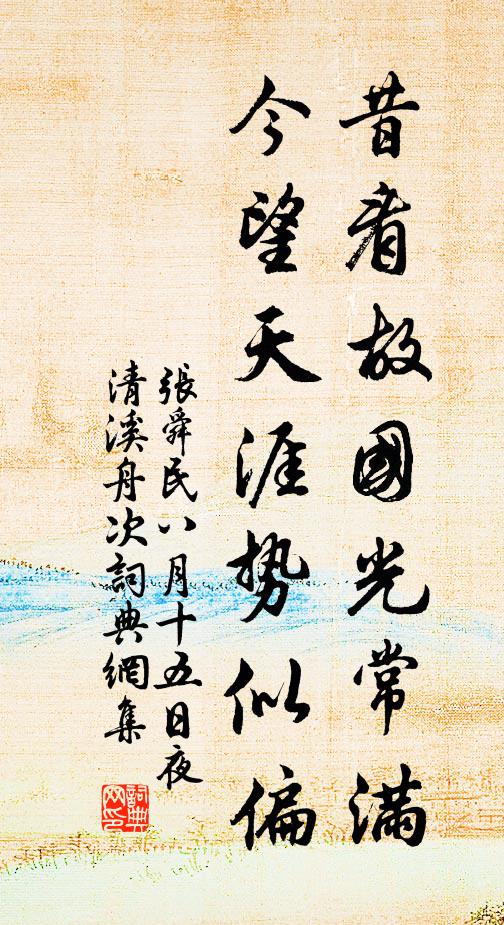 昔看故國光常滿
今望天涯势似偏
張舜民八月十五日夜
清溪舟次詞典網集
詞典网印